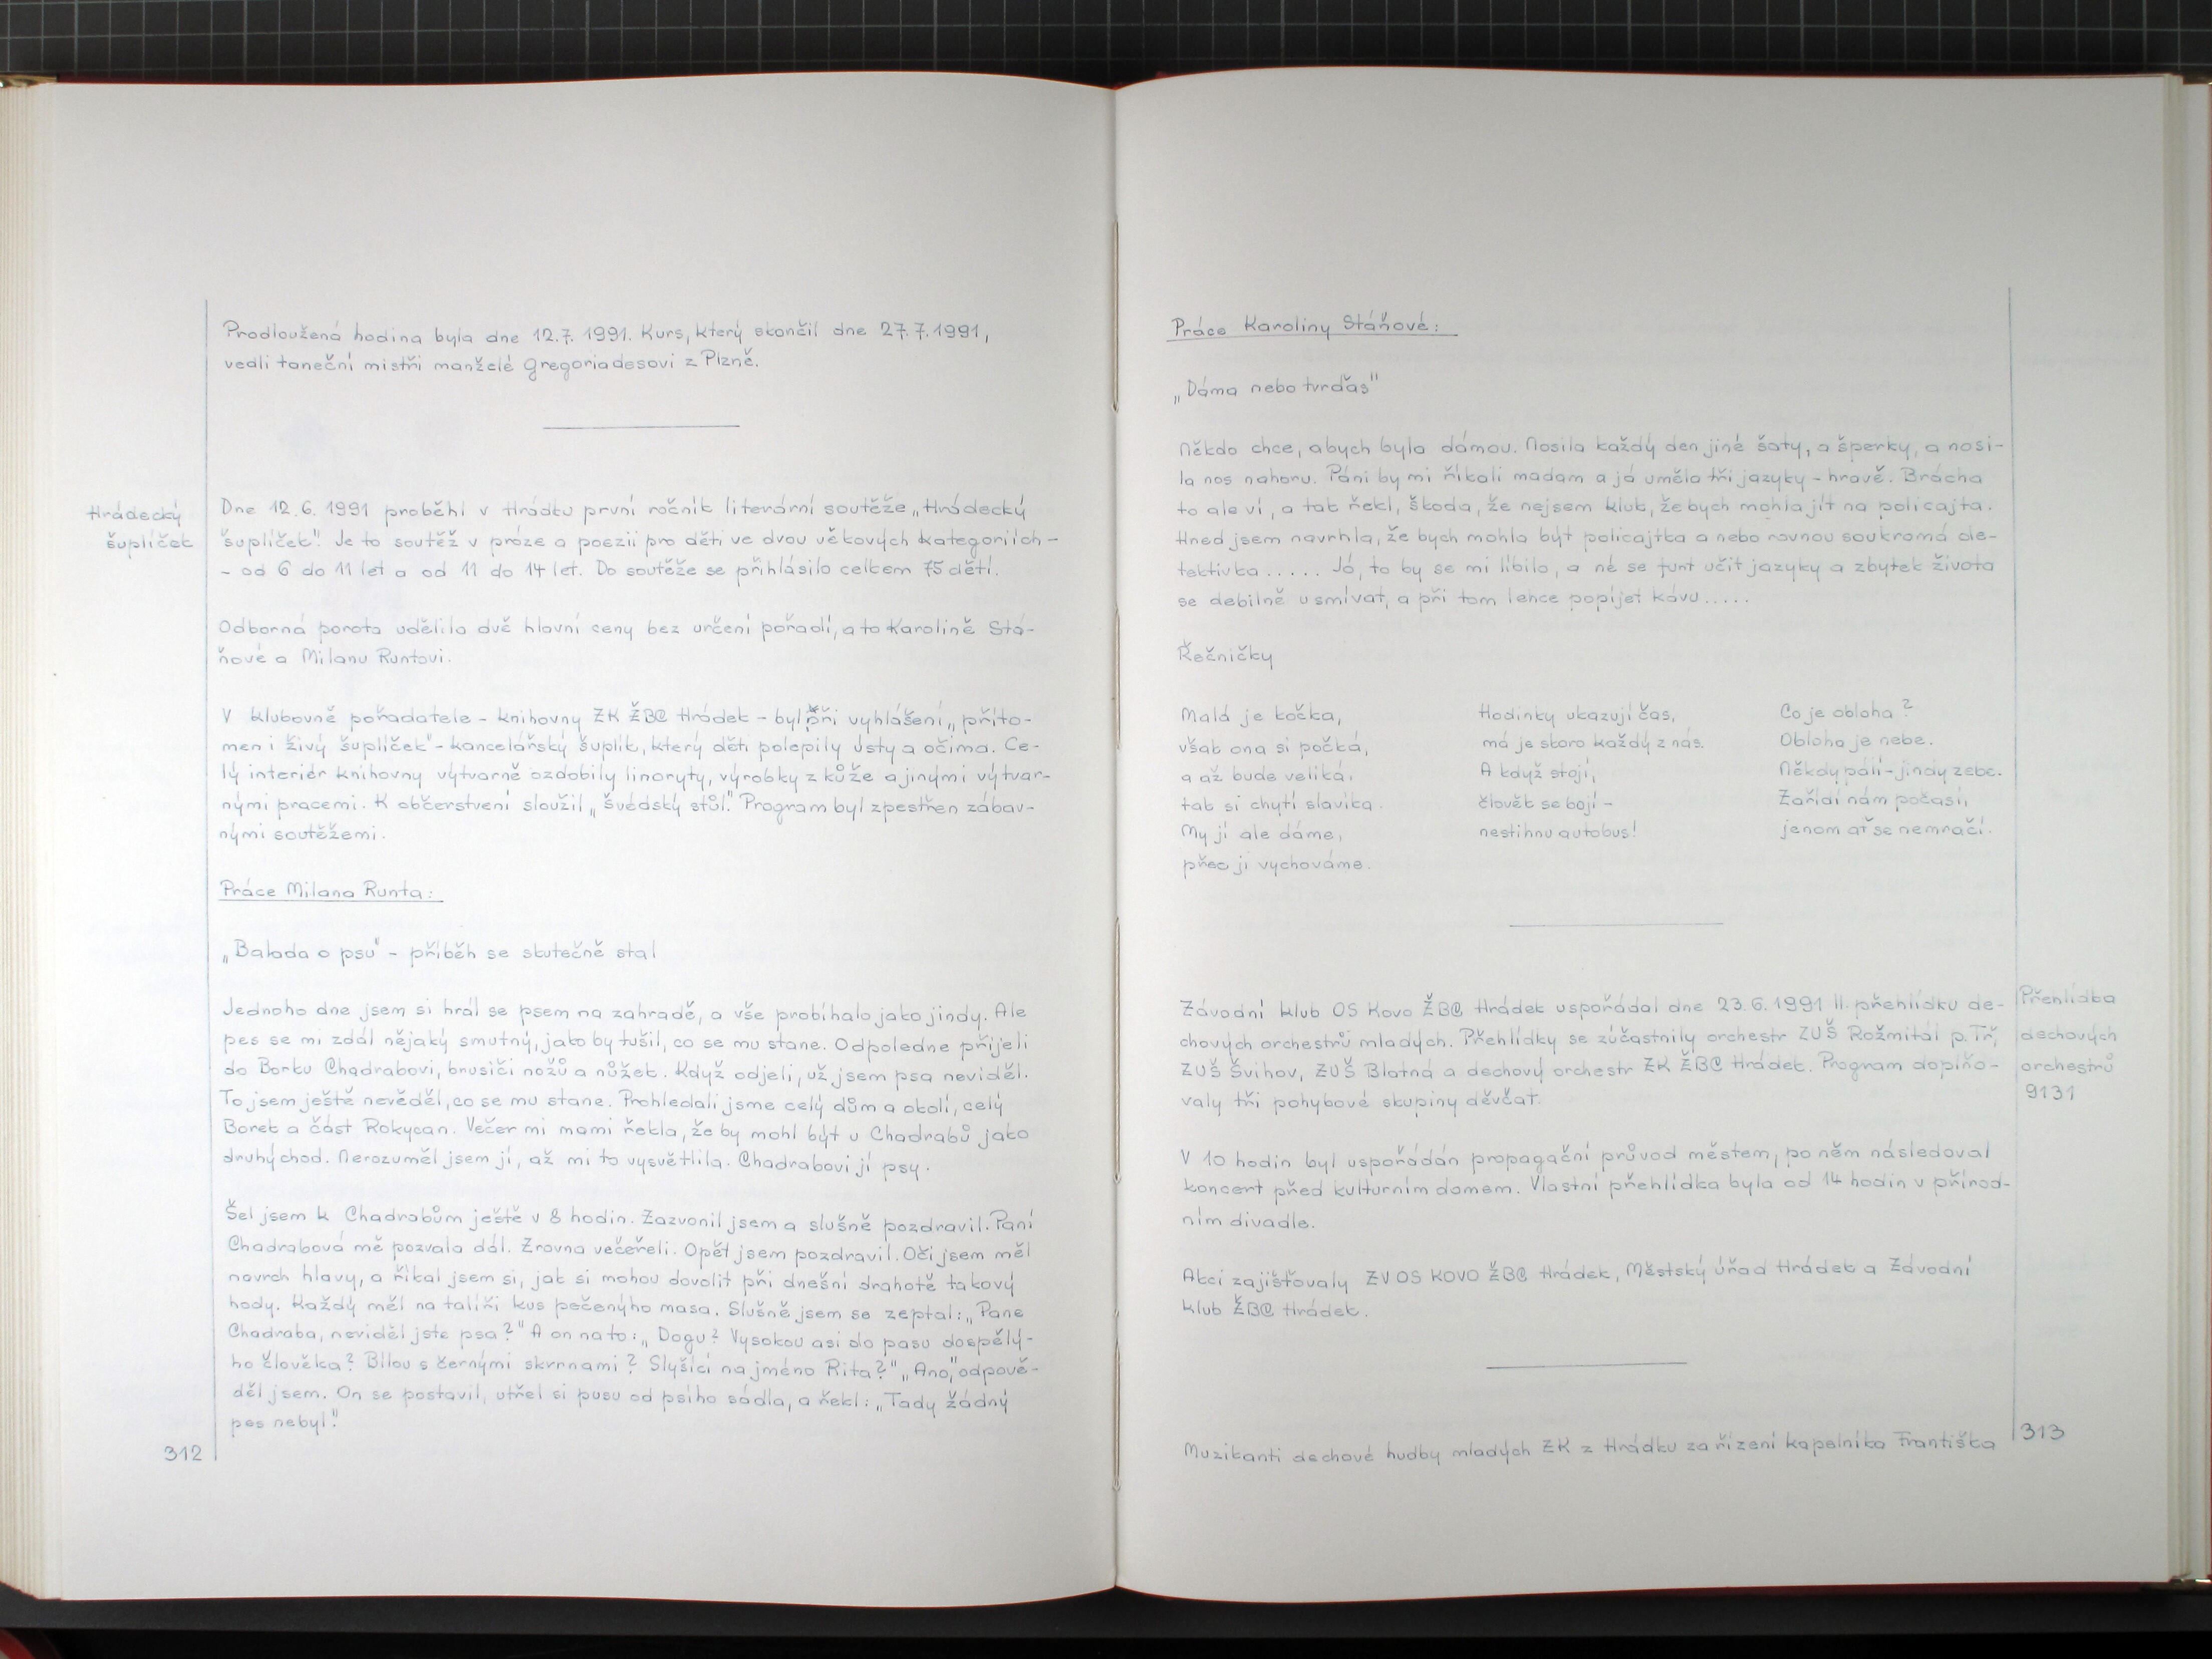 Prodloužená hodina byla dne 12.7. 1991. Kurs, který skončil dne 27.7.1991,
vedli taneční mistři manželé Gregoriadesovi z Plzně.
Hrádecký
šuplíček
Dne 12.6. 1991 proběhl v Hrádku první ročník literární soutěže „Hrádecký
šuplíček". Je to soutěž v próze a poezii pro děti ve dvou věkových kategoriích -
- od 6 do 11 let a od 11 do 14 let. Do soutěže se přihlásilo celkem 75 dětí.
Odborná porota udělila dvě hlavní ceny bez určení pořadí, a to Karolině Stá-
ňové a Milanu Runtovi.
V klubovně pořadatele - knihovny ZK ŽBC Hrádek - byl při vyhlášení „příto-
men i živý šuplíček" - kancelářský šuplík, který děti polepily ústy a očima. Ce-
lý interiér knihovny výtvarně ozdobily linoryty, výrobky z kůže a jinými výtvar-
nými pracemi. K občerstvení sloužil „švédský stůl". Program byl zpestřen zábav-
nými soutěžemi.
Práce Milana Runta:
„Balada o psu" - příběh se skutečně stal
Jednoho dne jsem si hrál se psem na zahradě, a vše probíhalo jako jindy. Ale
pes se mi zdál nějaký smutný, jako by tušil, co se mu stane. Odpoledne přijeli
do Borku Chadrabovi, brusiči nožů a nůžek. Když odjeli, už jsem psa neviděl.
To jsem ještě nevěděl, co se mu stane. Prohledali jsme celý dům a okolí, celý
Borek a část Rokycan. Večer mi mami řekla, že by mohl být u Chadrabů jako
druhý chod. Nerozuměl jsem jí, až mi to vysvětlila. Chadrabovi jí psy.
Šel jsem k Chadrabům ještě v 8 hodin. Zazvonil jsem a slušně pozdravil. Paní
Chadrabová mě pozvala dál. Zrovna večeřeli. Opět jsem pozdravil. Oči jsem měl
navrch hlavy, a říkal jsem si, jak si mohou dovolit při dnešní drahotě takový
hody. Každý měl na talíři kus pečenýho masa. Slušně jsem se zeptal: „Pane
Chadraba, neviděl jste psa?" A on na to: „Dogu? Vysokou asi do pasu dospělý-
ho člověka? Bílou s černými skvrnami? Slyšící na jméno Rita?" „Ano," odpově-
děl jsem. On se postavil, utřel si pusu od psího sádla, a řekl: „Tady žádný
pes nebyl."
312
Práce Karoliny Stáňové:
„Dáma nebo tvrďas"
Někdo chce, abych byla dámou. Nosila každý den jiné šaty, a šperky, a nosi-
la nos nahoru. Páni by mi říkali madam a já uměla tři jazyky - hravě. Brácha
to ale ví, a tak řekl, škoda, že nejsem kluk, že bych mohla jít na policajta.
Hned jsem navrhla, že bych mohla být policajtka a nebo rovnou soukromá de-
tektivka ..... Jó, to by se mi líbilo, a né se furt učit jazyky a zbytek života
se debilně usmívat, a při tom lehce popíjet kávu .....
Řečničky
Malá je kočka,
však ona si počká,
a až bude veliká,
tak si chytí slavíka.
My jí ale dáme,
přec ji vychováme.
Hodinky ukazují čas,
má je skoro každý z nás.
A když stojí,
člověk se bojí -
nestihnu autobus!
Co je obloha?
Obloha je nebe.
Někdy pálí - jindy zebe.
Zařídí nám počasí,
jenom ať se nemračí.
Přehlídka
dechových
orchestrů
9131
Závodní klub OS Kovo ŽBC Hrádek uspořádal dne 23.6.1991 II. přehlídku de-
chových orchestrů mladých. Přehlídky se zúčastnily orchestr ZUŠ Rožmitál p. Tř.,
ZUŠ Švihov, ZUŠ Blatná a dechový orchestr ZK ŽBC Hrádek. Program doplňo-
valy tři pohybové skupiny děvčat.
V 10 hodin byl uspořádán propagační průvod městem, po něm následoval
koncert před kulturním domem. Vlastní přehlídka byla od 14 hodin v přírod-
ním divadle.
Akci zajišťovaly ZV OS KOVO ŽBC Hrádek, Městský úřad Hrádek a Závodní
klub ŽBC Hrádek.
Muzikanti dechové hudby mladých ZK z Hrádku za řízení kapelníka Františka
313